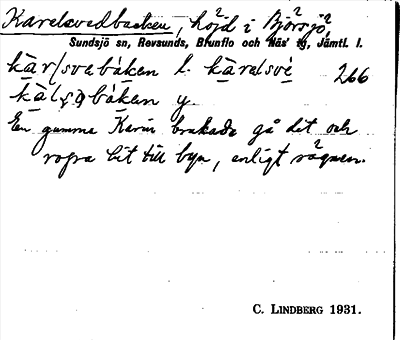 Karelsvedbacken, höjd i Björsjö
Sundsjö sn, Revsunds, Brunflo och Näs' tg, Jämtl. l.
kär/svebáken l. kärelsvé 266
kälsobáken y.
En gumma Karin brukade gå dit och
ropa hit till byn, enligt sägnen.
C. LINDBERG 1931.